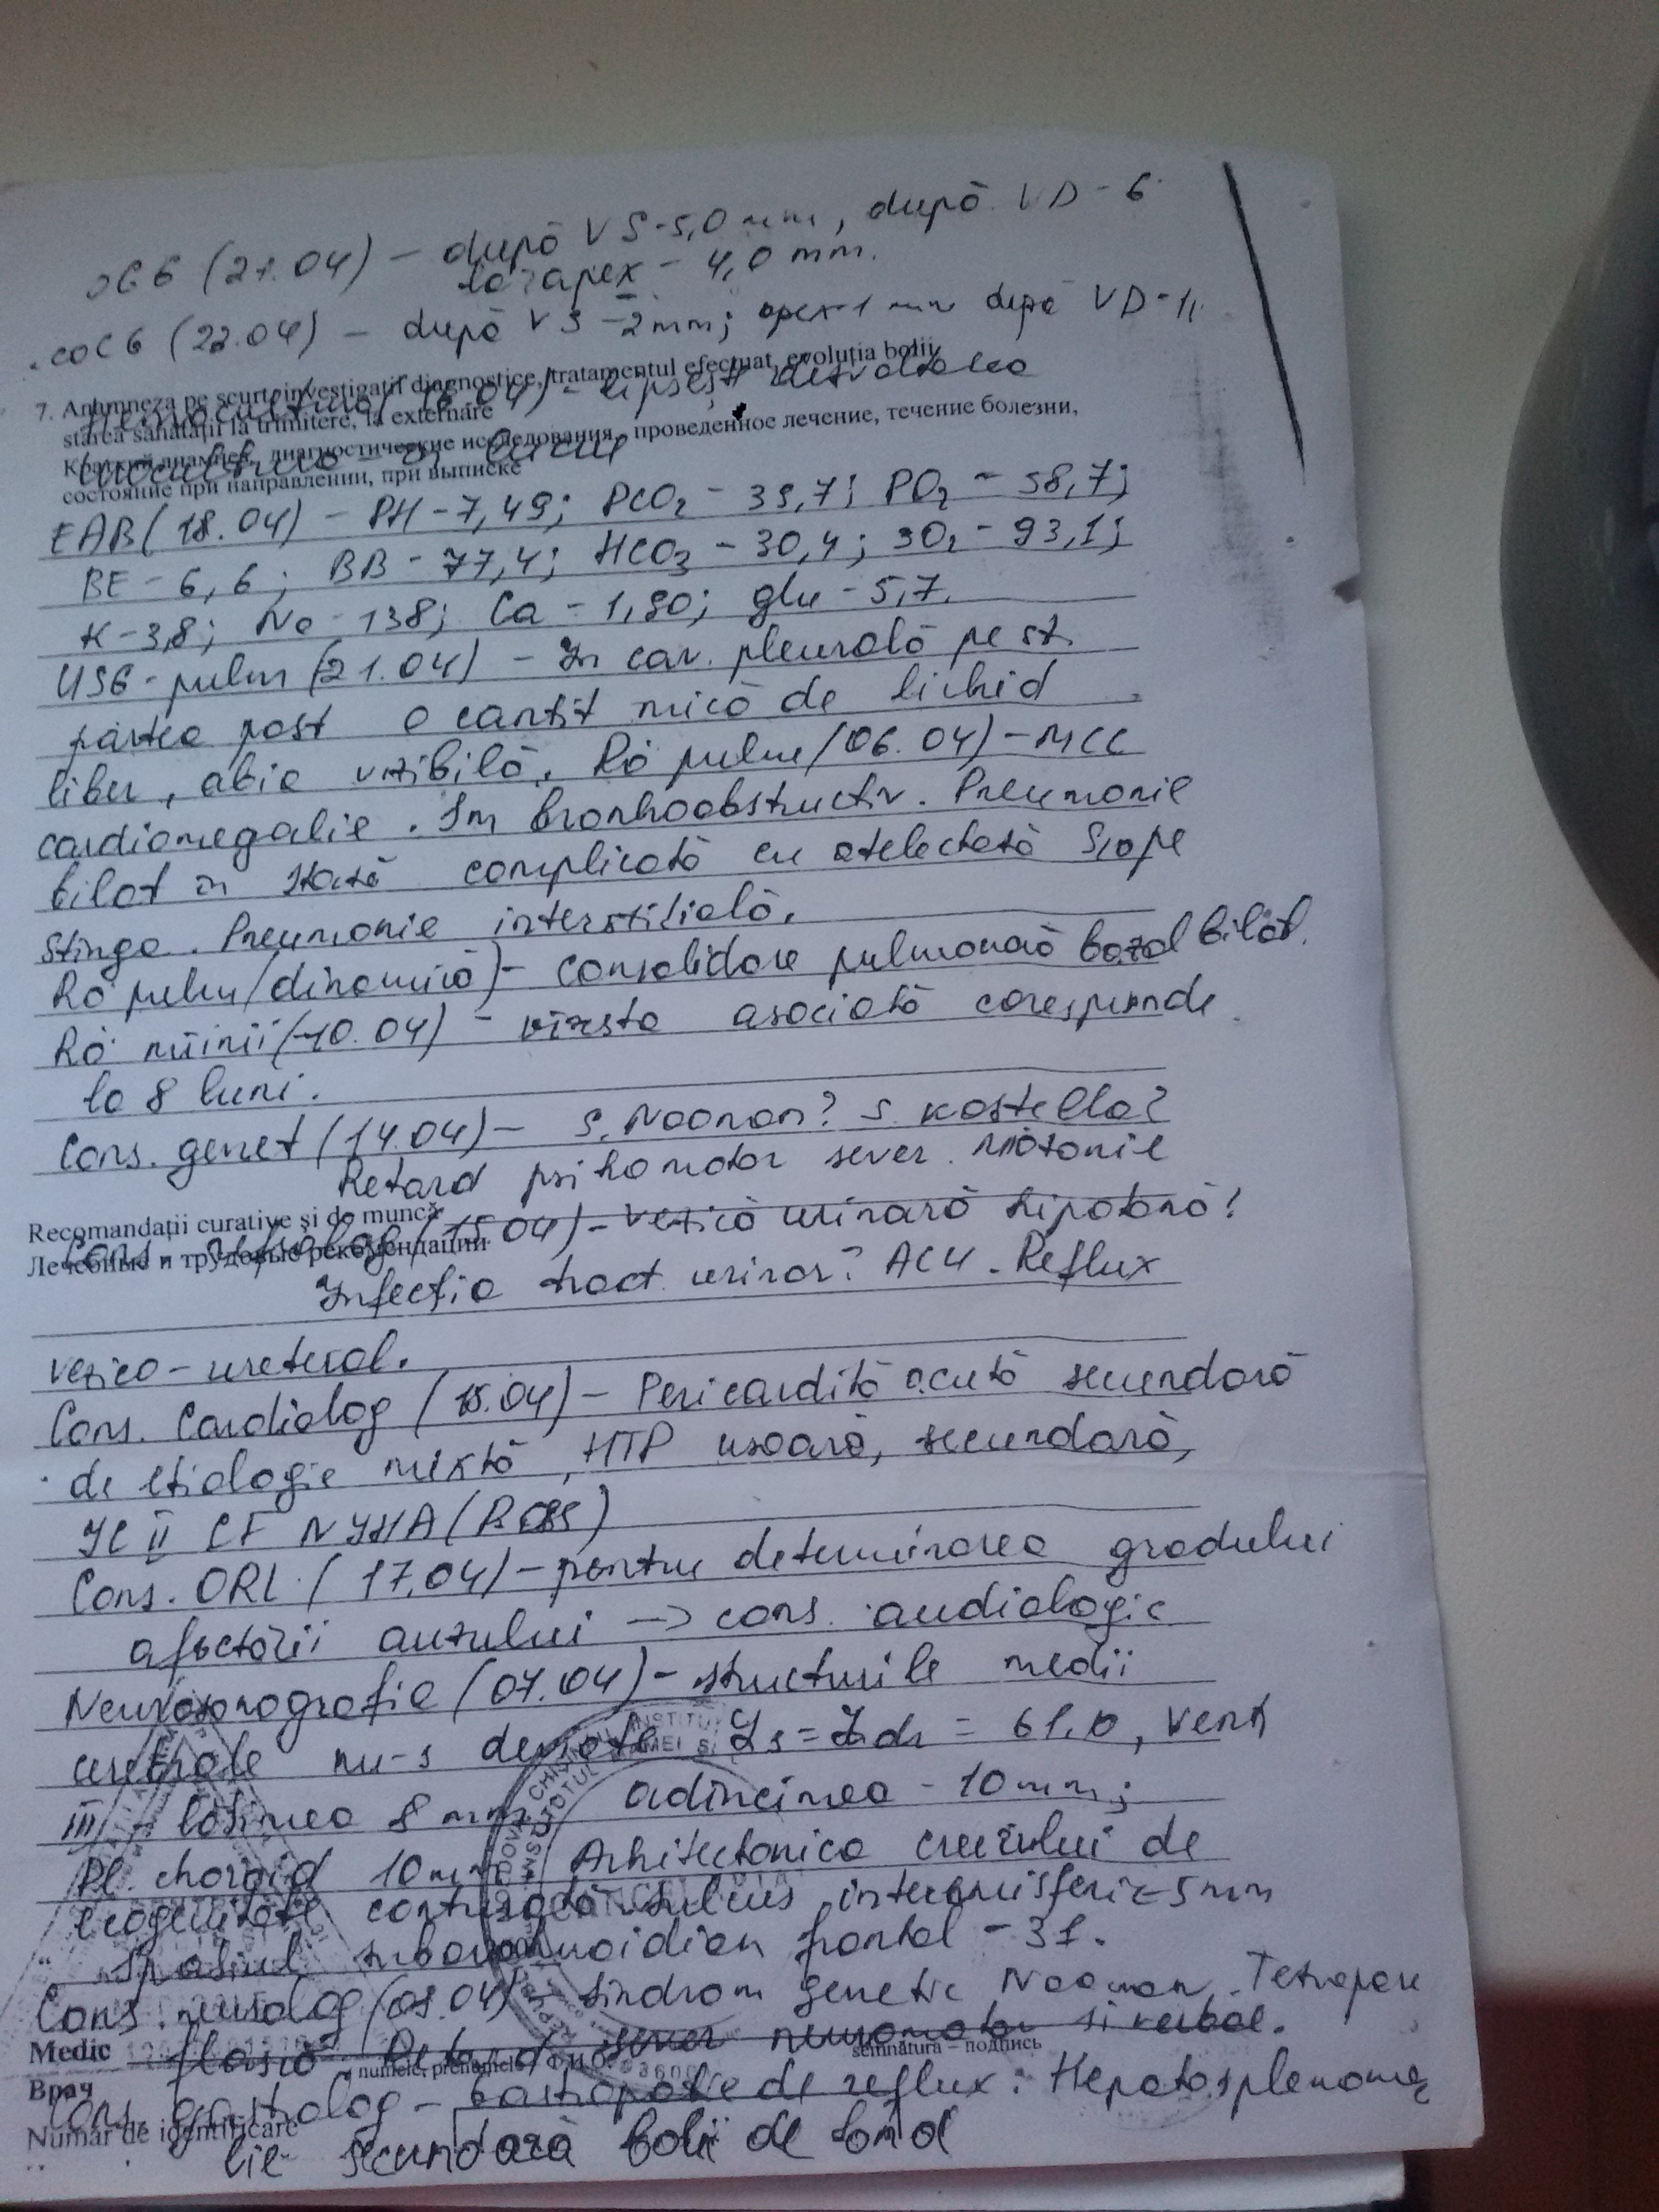 (21.04) – după VS-5,0 mm, după VD-6
la apex – 4,0 mm.
(22.04) – după VS – 2 mm; apex-1 mm după VD-11
7. Anamneza pe scurt, investigații diagnostice, tratamentul efectuat, evoluția bolii,
(16.04) – lipsește dezvoltarea
starea sănătății la trimitere, la externare
Краткий анамнез, диагностические исследования, проведенное лечение, течение болезни,
состояние при направлении, при выписке
EAB (18.04) – PH – 7,49; PCO2 – 39,7; PO2 – 58,7;
BE – 6,6; BB – 77,4; HCO3 – 30,4; SO2 – 93,1;
K-3,8; Na – 138; Ca – 1,90; glu – 5,7.
USG-pulm (21.04) – În cav. pleurală pe st.
partea post o cantit mică de lichid
liber, abia vizibilă. Rö pulm (06.04) – MCC
cardiomegalie. Sm bronhoobstructiv. Pneumonie
bilat în complicată cu atelectază
stînga. Pneumonie interstițială.
Rö pulm (dinamică) – consolidare pulmonară bazal bilat.
Rö mîinii (10.04) – vîrsta asociată corespunde
la 8 luni.
Cons. genet (14.04) – S. Noonan? S. Kostello?
Retard psihomotor sever. Miotonie
Recomandații curative și de muncă
Лечебные и трудовые рекомендации
Cons. nefrolog (15.04) – vezică urinară hipotonă?
Infecția tract. urinar? ACU. Reflux
vezico-ureteral.
Cons. Cardiolog (15.04) – Pericardită acută secundară
de etiologie mixtă, HTP ușoară, secundară,
IC II CF NYHA (ROSS)
Cons. ORL (17.04) – pentru determinarea gradului
afectării auzului → cons. audiologic
Neurosonografia (07.04) – structurile medii
cerebrale nu-s deviate = 61.0, Vent
III – lățimea 8 mm, adîncimea – 10 mm;
Pl. choroid 10 mm. Arhitectonica creierului de
ecogenitate conturată. Sulcus interemisferic – 5 mm
Spațiul subarahnoidian frontal – 31.
Cons. neurolog (08.04) – sindrom genetic Noonan. Tetrapare
flască. Retard sever neuromotor și verbal.
Medic
numele, prenumele – Ф.И.О.
semnătura – подпись
Врач
Cons. gastrolog – Gastropatie de reflux. Hepatosplenomeg
Număr de identificare
lie secundară bolii de bază